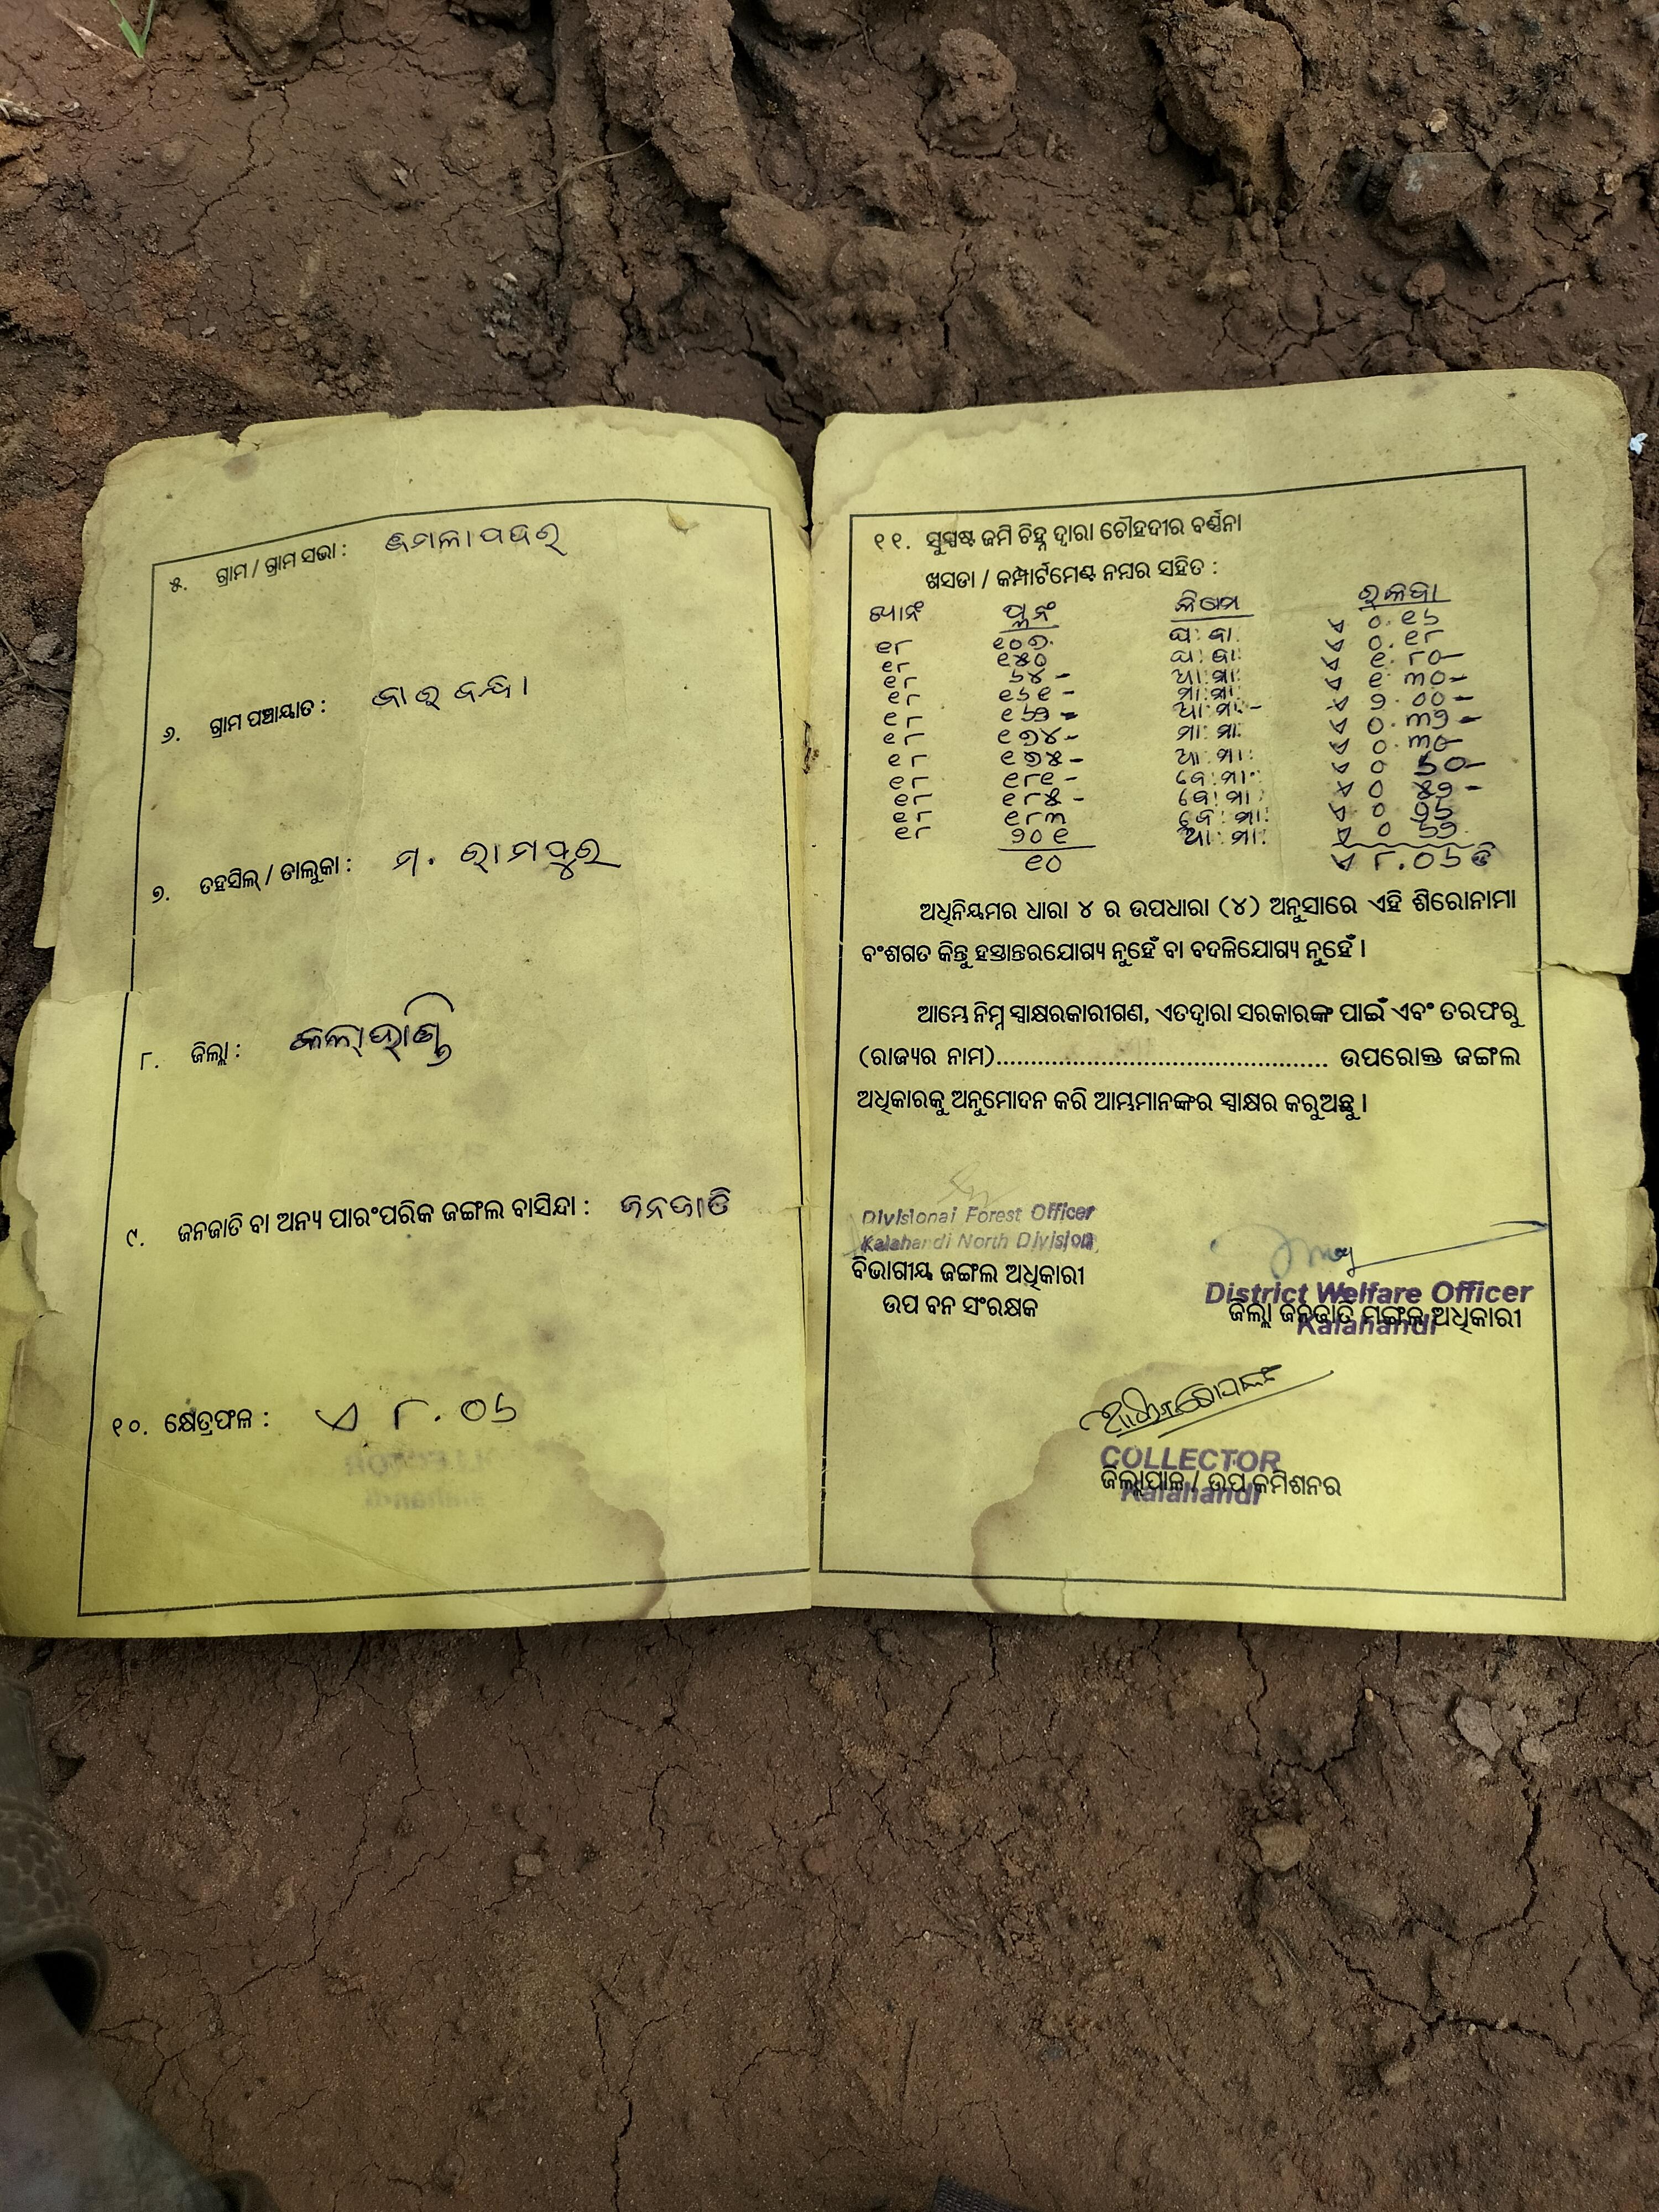 ୫. ଗ୍ରାମ / ଗ୍ରାମ ସଭା : ଜମଲାପଦର
୬. ଗ୍ରାମ ପଞ୍ଚାୟାତ : ବାରବନ୍ଧା
୭. ତହସିଲ୍ / ତାଲୁକା : ମ. ରାମପୁର
୮. ଜିଲ୍ଲା : କଳାହାଣ୍ଡି
୯. ଜନଜାତି ବା ଅନ୍ୟ ପାରଂପରିକ ଜଙ୍ଗଲ ବାସିନ୍ଦା : ଜନଜାତି
୧୦. କ୍ଷେତ୍ରଫଳ : ଏ ୮.୦୬
୧୧. ସୁସ୍ପଷ୍ଟ ଜମି ଚିହ୍ନ ଦ୍ୱାରା ଚୌହଦୀର ବର୍ଣ୍ଣନା
ଖସଡା / କମ୍ପାର୍ଟମେଣ୍ଟ ନମ୍ବର ସହିତ :
ପ୍ଲନଂ କିସମ ରକବା
୧୮ ୧୦୭ ଘ:ବା: ଏ ୦.୧୬
୧୮ ୧୫୦ ଘ:ବା: ଏ ୦.୧୮
୧୮ ୬୪ – ଆ:ମା: ଏ ୧.୮୦–
୧୮ ୧୬୧ – ମା:ମା: ଏ ୧.୩୦–
୧୮ ୧୬୨ – ଆ:ମା:– ଏ ୨.୦୦–
୧୮ ୧୭୪ – ମା:ମା: ଏ ୦.୩୨–
୧୮ ୧୭୫ – ଆ:ମା: ଏ ୦.୩୦–
୧୮ ୧୮୧ – ବେ:ମା: ଏ ୦ ୬୦–
୧୮ ୧୮୫ – ବେ:ମା: ଏ ୦ ୫୨ –
୧୮ ୧୮୩ ବେ:ମା: ଏ ୦
୧୮ ୨୦୧ ଆ:ମା: ଏ ୦ ୬୨
୧୦ ଏ ୮.୦୬ ଡି
ଅଧିନିୟମର ଧାରା ୪ ର ଉପଧାରା (୪) ଅନୁସାରେ ଏହି ଶିରୋନାମା
ବଂଶଗତ କିନ୍ତୁ ହସ୍ତାନ୍ତରଯୋଗ୍ୟ ନୁହେଁ ବା ବଦଳିଯୋଗ୍ୟ ନୁହେଁ ।
ଆମ୍ଭେ ନିମ୍ନ ସ୍ୱାକ୍ଷରକାରୀଗଣ, ଏତଦ୍ୱାରା ସରକାରଙ୍କ ପାଇଁ ଏବଂ ତରଫରୁ
(ରାଜ୍ୟର ନାମ)................................................ ଉପରୋକ୍ତ ଜଙ୍ଗଲ
ଅଧିକାରକୁ ଅନୁମୋଦନ କରି ଆମ୍ଭମାନଙ୍କର ସ୍ୱାକ୍ଷର କରୁଅଛୁ ।
Divisional Forest Officer
Kalahandi North Division
ବିଭାଗୀୟ ଜଙ୍ଗଲ ଅଧିକାରୀ
ଉପ ବନ ସଂରକ୍ଷକ
District Welfare Officer
Kalahandi
ଜିଲ୍ଲା ଜନଜାତି ମଙ୍ଗଳ ଅଧିକାରୀ
COLLECTOR
Kalahandi
ଜିଲ୍ଲାପାଳ / ଉପ କମିଶନର